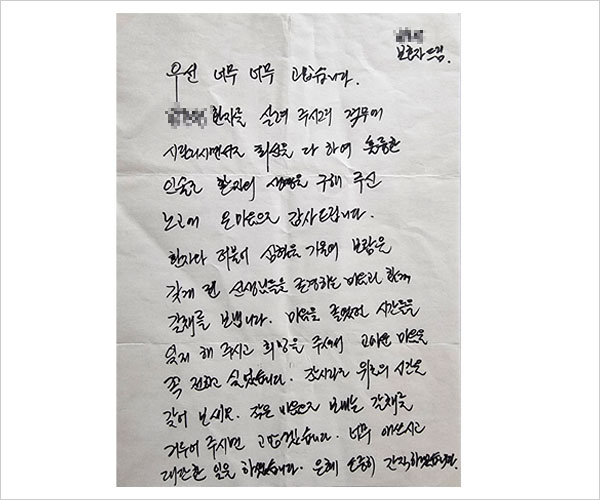 보호자드림.
우선 너무 너무 고맙습니다.
환자를 살려 주시려 격무에
시달리시면서도 최선을 다 하여 훌륭한
인술로 환자의 생명을 구해 주신
노고에 온마음으로 감사드립니다.
환자와 더불어 심혈을 기울여 보람을
갖게 된 선생님들을 존경하는 마음과 함께
갈채를 보냅니다. 마음을 졸였던 시간들을
잊게 해 주시고 희망을 주셔서 고마운 마음을
꼭 전하고 싶었습니다. 잠시라도 위로의 시간을
갖어 보세요. 작은 마음으로 보내는 갈채를
거두어 주시면 고맙겠습니다. 너무 애쓰시고
대단한 일을 하셨습니다. 은혜 소중히 간직하겠습니다.